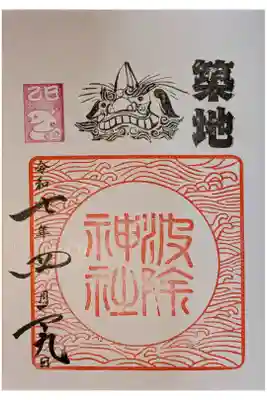 築地
乙巳
波除
神社
令和七年四月十九日